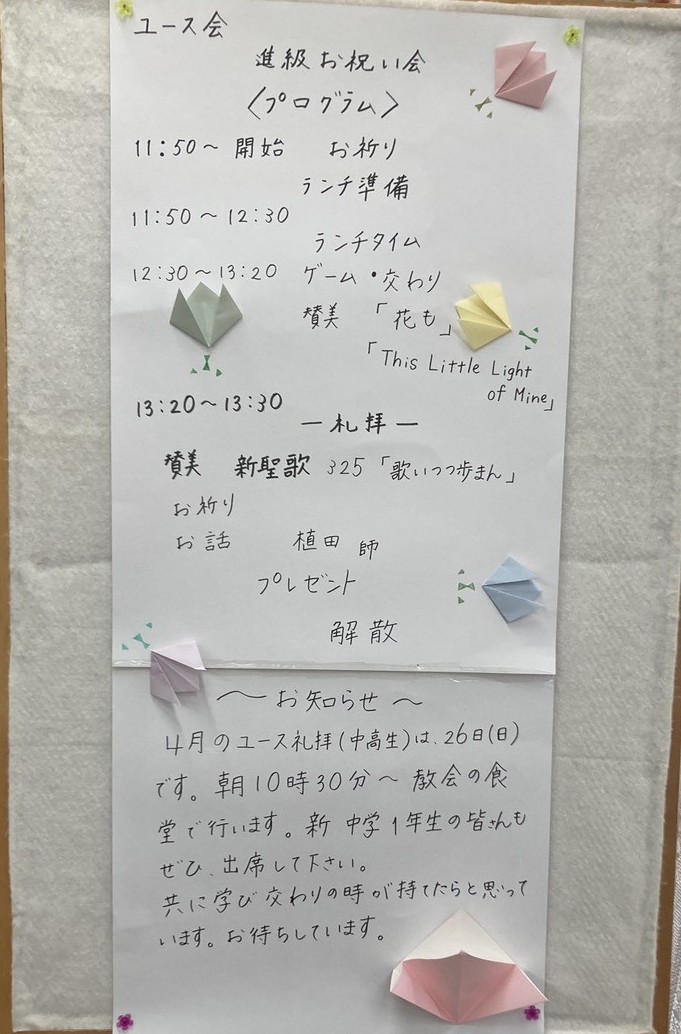 ユース会
進級お祝い会
〈プログラム〉
11:50～ 開始 お祈り
ランチ準備
11:50～12:30
ランチタイム
12:30～13:20 ゲーム・交わり
賛美 「花も」
「This Little Light
of Mine」
13:20～13:30
ー札拝ー
賛美 新聖歌 325「歌いつつ歩まん」
お祈り
お話 植田 師
プレゼント
解散
～お知らせ～
4月のユース礼拝(中高生)は、26日(日)
です。朝10時30分～ 教会の食
堂で行います。新 中学1年生の皆さんも
ぜひ、出席して下さい。
共に学び交わりの時が持てたらと思って
います。お待ちしています。